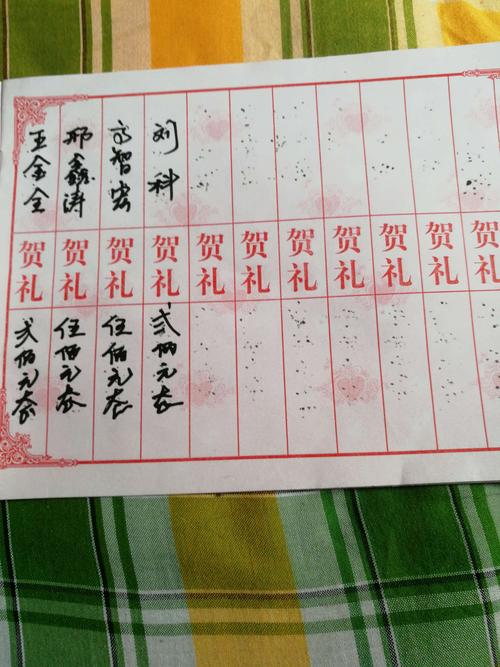 王金全 贺礼 弍佰元整
邢鑫涛 贺礼 伍佰元整
高智宏 贺礼 伍佰元整
刘科 贺礼 弍佰元整
贺礼
贺礼
贺礼
贺礼
贺礼
贺礼
贺礼